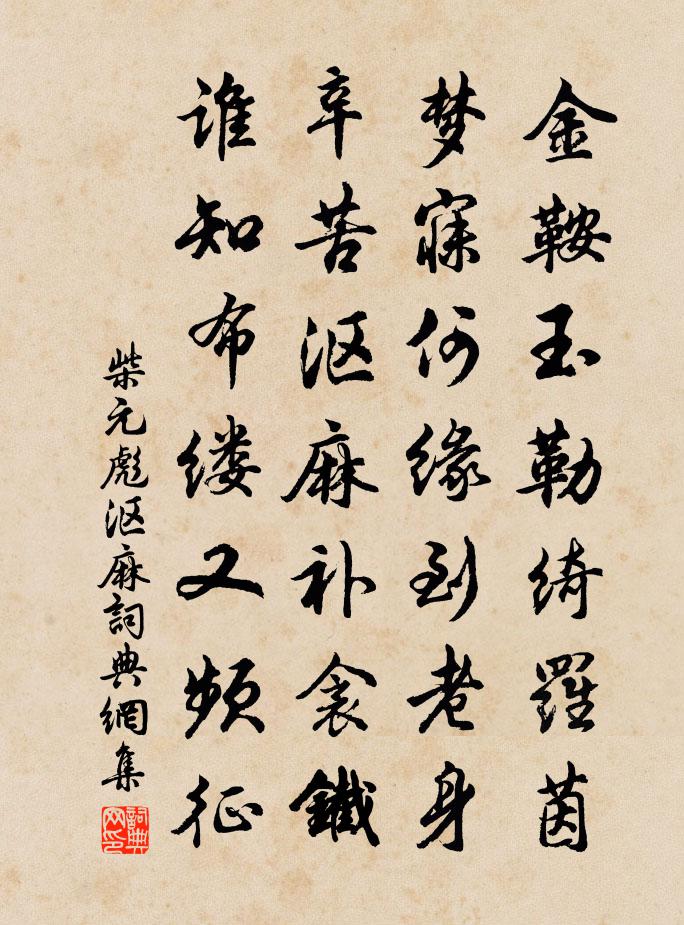 金鞍玉勒绮羅茵
梦寐何缘到老身
辛苦沤麻补衾鐵
谁知布缕又频征
柴元彪沤麻詞典網集
詞典
网印